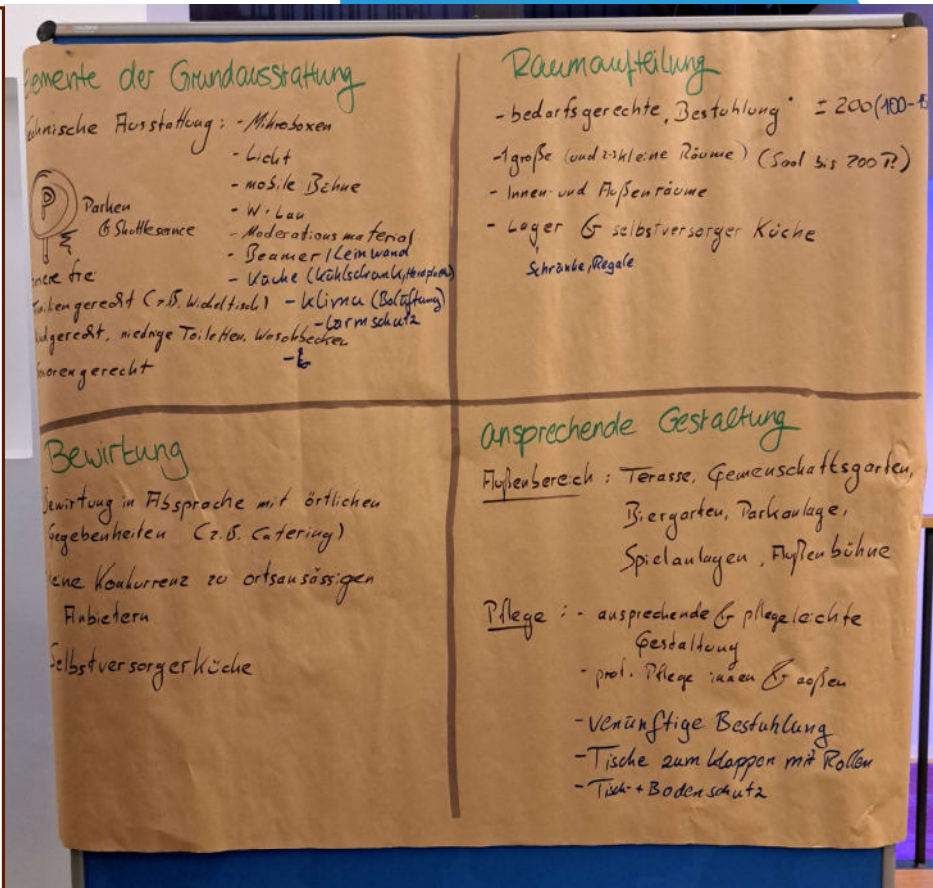 Elemente der Grundausstattung
Technische Ausstattung: - Mikroboxen
- Licht
- mobile Bühne
- W-Lan
- Moderationsmaterial
- Beamer/Leinwand
- Küche (Kühlschrank,
- Klima (Belüftung)
- Lärmschutz
P Parken
& Shuttleservice
(z.B. Wickeltisch)
niedrige Toiletten, Waschbecken
gerecht
Raumaufteilung
- bedarfsgerechte "Bestuhlung" = 200 (100-
- 1 große (und 2-3 kleine Räume) (Saal bis 200 P.)
- Innen- und Außenräume
- Lager & selbstversorger Küche
Schränke, Regale
Bewirtung
Bewirtung in Absprache mit örtlichen
Gegebenheiten (z.B. Catering)
Konkurrenz zu ortsansässigen
Anbietern
Selbstversorgerküche
ansprechende Gestaltung
Außenbereich: Terasse, Gemenschaftsgarten,
Biergarten, Parkanlage,
Spielanlagen, Außenbühne
Pflege: - ansprechende & pflegeleichte
Gestaltung
- prof. Pflege innen & außen
- venünftige Bestuhlung
- Tische zum klappen mit Rollen
- Tisch- + Bodenschutz